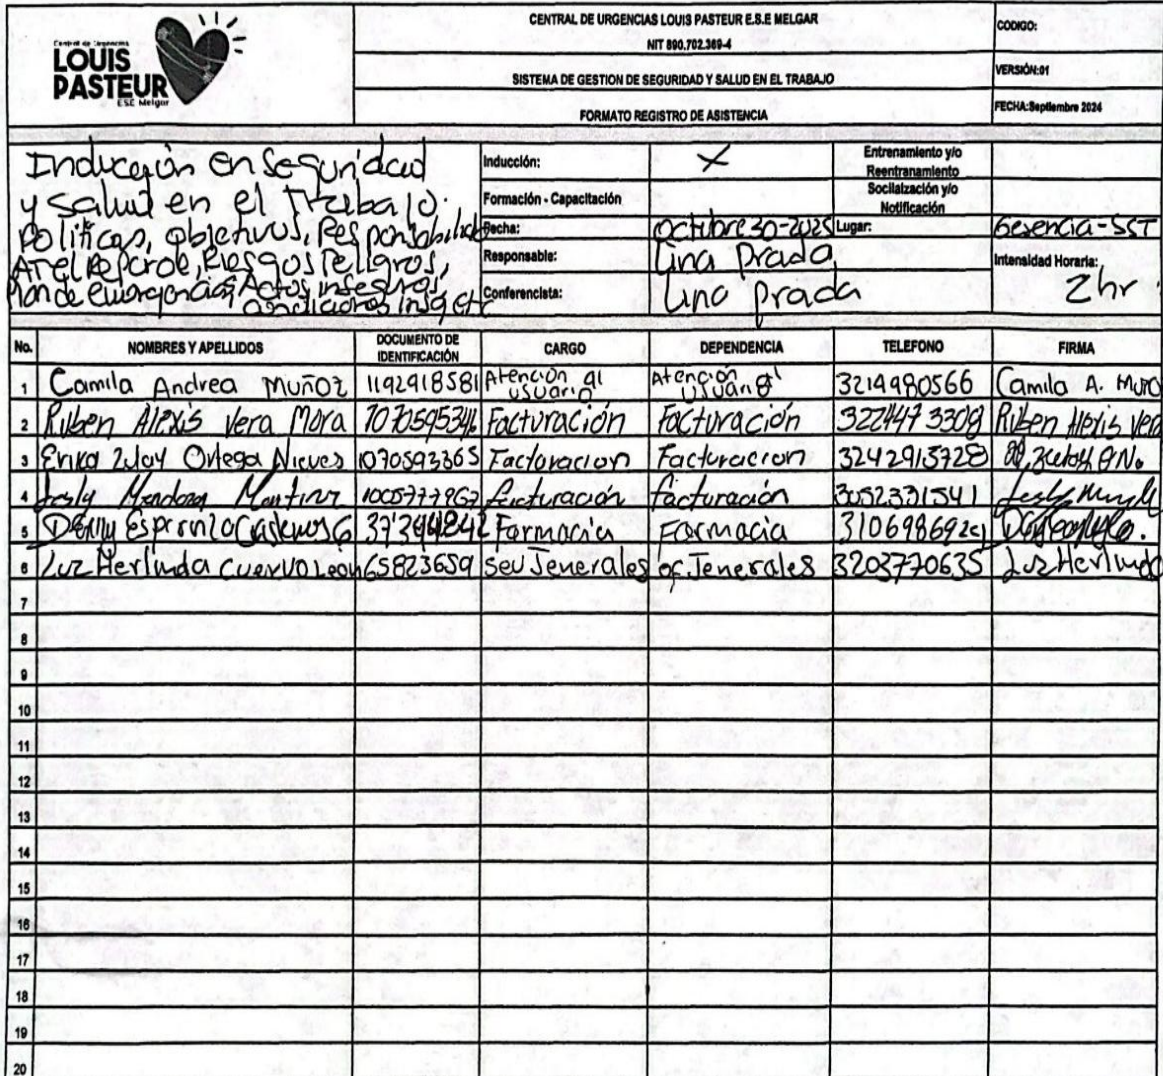 Central de Urgencias
LOUIS
PASTEUR
ESE Melgar
CENTRAL DE URGENCIAS LOUIS PASTEUR E.S.E MELGAR
NIT 890.702.369-4
SISTEMA DE GESTION DE SEGURIDAD Y SALUD EN EL TRABAJO
FORMATO REGISTRO DE ASISTENCIA
CODIGO:
VERSIÓN:01
FECHA:Septiembre 2024
Inducción en Seguridad
y Salud en el Trabajo.
Políticas, objetivos, Responsabilidad
Riesgos Peligros,
Plan de emergencias, Actos inseguros,
condiciones inseg etc
Inducción: X
Entrenamiento y/o
Reentranamiento
Formación - Capacitación
Socilaización y/o
Notificación
Fecha: Octubre 30-2025 Lugar: Gerencia-SST
Responsable: Lina Prada
Intensidad Horaria: 2hr
Conferencista: Lina prada
No. NOMBRES Y APELLIDOS DOCUMENTO DE IDENTIFICACIÓN CARGO DEPENDENCIA TELEFONO FIRMA
1 Camila Andrea Muñoz 1192918581 Atención al usuario Atención al usuario 3214980566 Camila A. Muño
2 Ruben Alexis Vera Mora Facturación Facturación 322447 3308 Ruben Alexis Vera
3 Erika Ortega Nieves 1070593365 Facturacion Facturacion 3242915728
4 Lesly Mendoza Martinez 1005777867 facturación facturación 3052331541
5 Farmacia Farmacia
6 Luz Herlinda Cuervo Leon 65823659 Seu Jenerales Jenerales 3203770635 Luz Herlinda
7
8
9
10
11
12
13
14
15
16
17
18
19
20